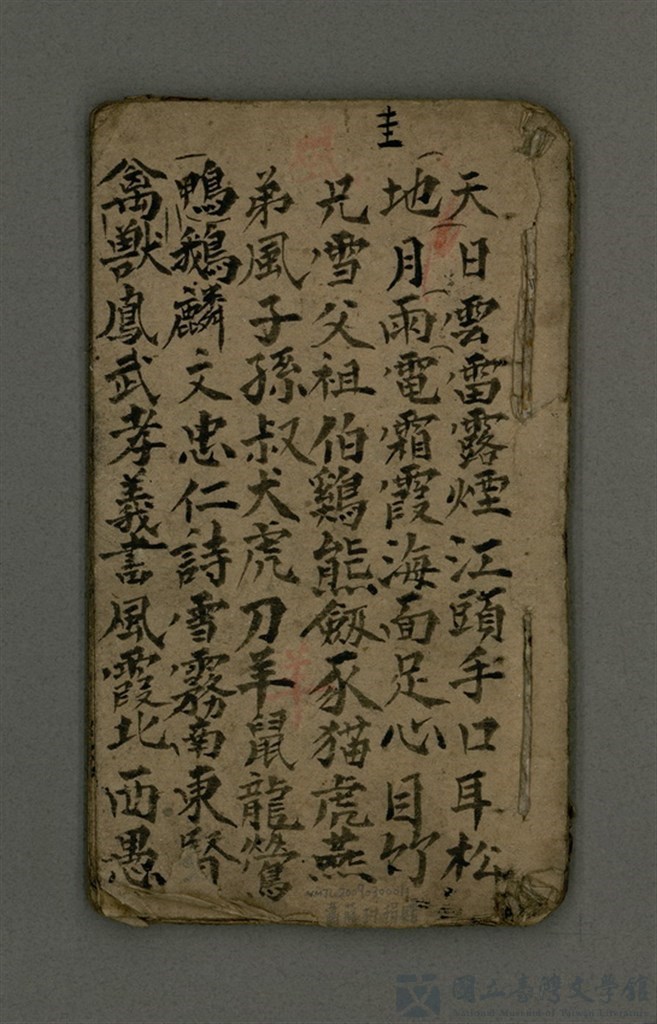 圭
天日雲雷露煙江頭手口耳松
地月雨電霜霞海面足心目竹
兄雪父祖伯鷄熊劔豕猫虎燕
弟風子孫叔犬虎刀羊鼠龍鶯
鴨鵝麟文忠仁詩雪霧南東賢
禽獸鳳武孝義書風霞北西愚
國立臺灣文學館
National Museum of Taiwan Literature